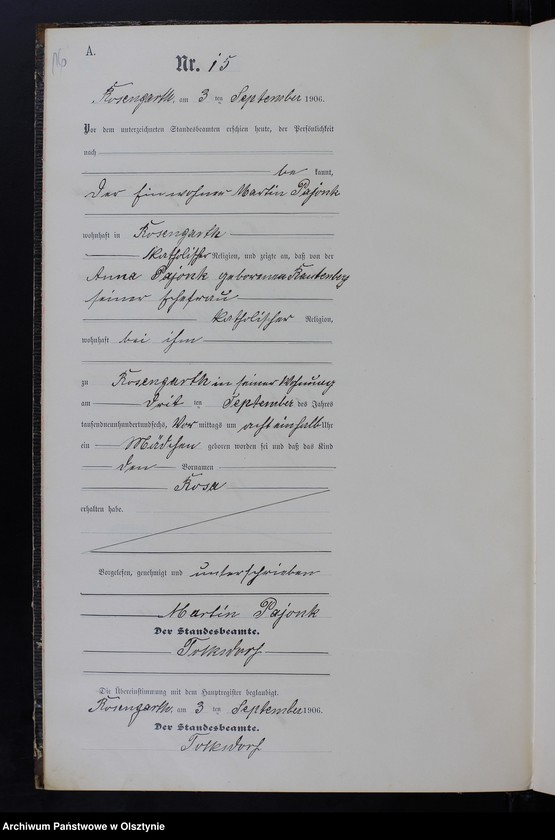 A.
Nr. 15
Rosengarth, am 3 ten September 1906.
Vor dem unterzeichneten Standesbeamten erschien heute, der Persönlichkeit
nach
be kannt,
der Einwohner Martin Pajonk
wohnhaft in Rosengarth
katholischer Religion, und zeigte an, daß von der
Anna Pajonk geborenen Rautenberg
seiner Ehefrau
katholischer Religion,
wohnhaft bei ihm
zu Rosengarth in seiner Wohnung
am drit ten September des Jahres
tausendneunhundertundsechs, Vor mittags um acht einhalb Uhr
ein Mädchen geboren worden sei und daß das Kind
den Vornamen
Rosa
erhalten habe.
Vorgelesen, genehmigt und unterschrieben
Martin Pajonk
Der Standesbeamte.
Tolksdorf
Die Übereinstimmung mit dem Hauptregister beglaubigt.
Rosengarth, am 3 ten September 1906.
Der Standesbeamte.
Tolksdorf
Archiwum Państwowe w Olsztynie